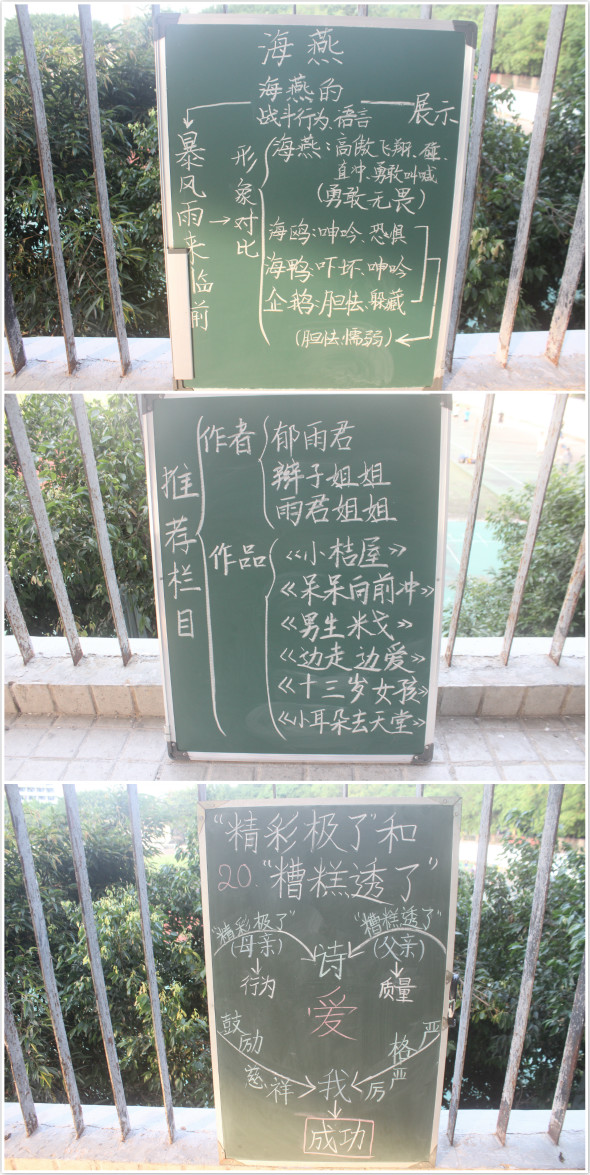 海燕
海燕的
战斗行为、语言
展示
暴风雨来临前
形象对比
海燕:高傲飞翔、碰、
直冲、勇敢叫喊
(勇敢无畏)
海鸥:呻吟、恐惧
海鸭:吓坏、呻吟
企鹅:胆怯、躲藏
(胆怯、懦弱)
推荐栏目
作者
郁雨君
辫子姐姐
雨君姐姐
作品
《小桔屋》
《呆呆向前冲》
《男生米戈》
《边走边爱》
《十三岁女孩》
《小耳朵去天堂》
“精彩极了”和
20.“糟糕透了”
“精彩极了”
(母亲)
行为
诗
“糟糕透了”
(父亲)
质量
爱
鼓励
慈祥
我
严格
严厉
成功